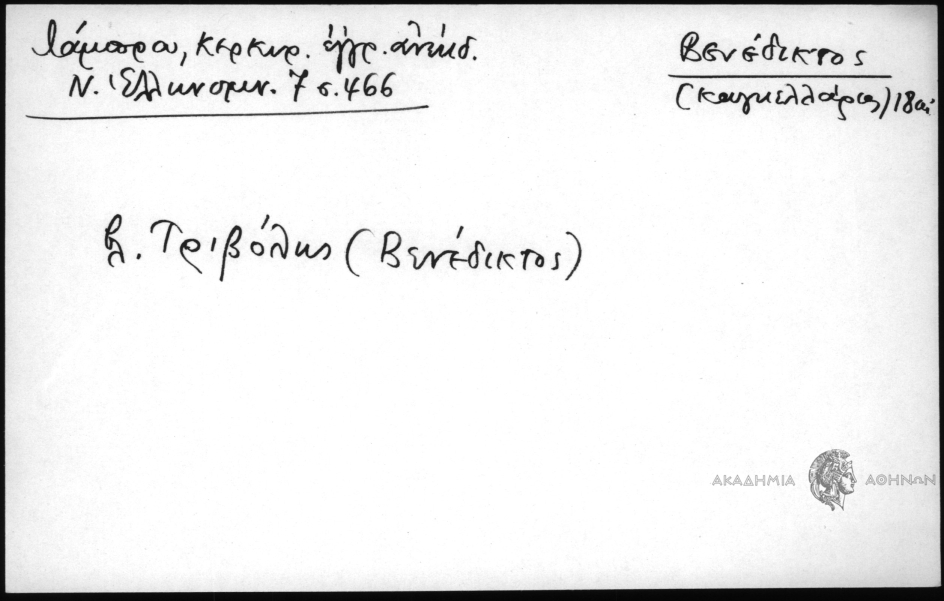 Λάμπρου, Κερκυρ. ἔγγρ. ἀνέκδ.
Ν. Ἑλληνομν. 7 σ. 466
Βενέδικτος
(καγκελλάριος) 18 αἰ.
βλ. Τριβόλης (Βενέδικτος)
ΑΚΑΔΗΜΙΑ ΑΘΗΝΩΝ